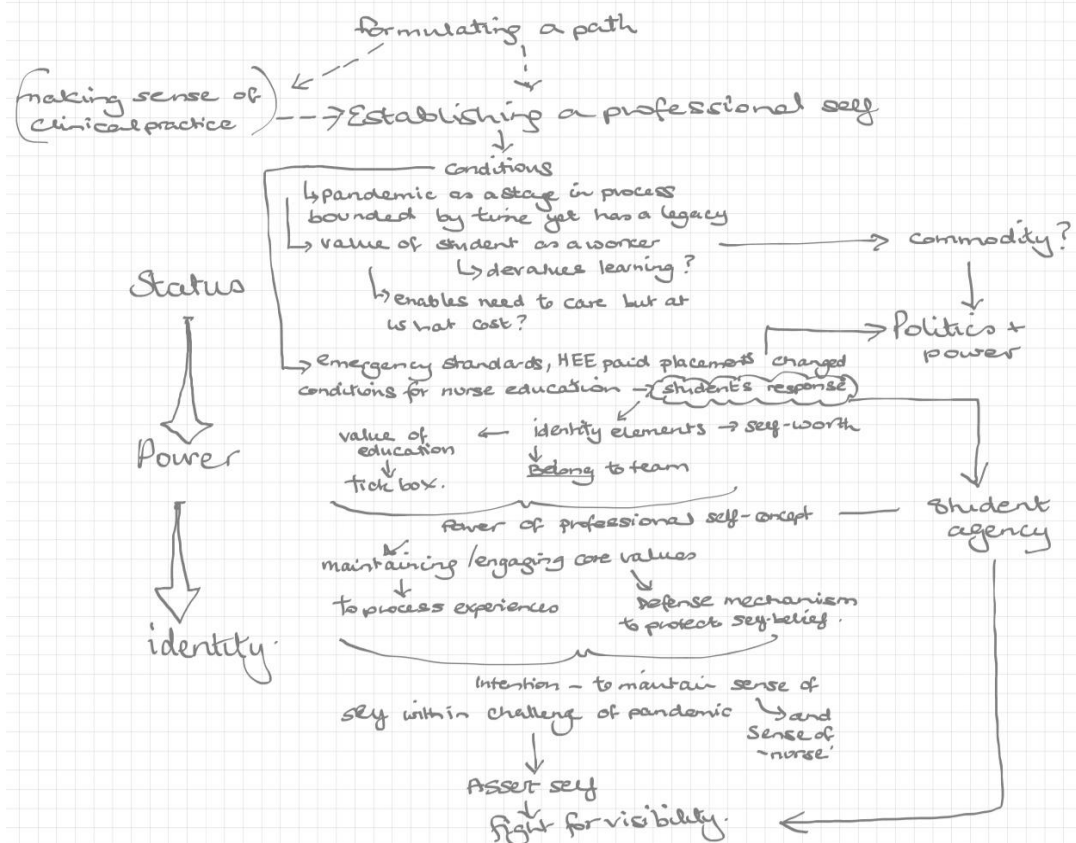 formulating a path
(making sense of
clinical practice)
Establishing a professional self
Conditions
pandemic as a stage in process
bounded by time yet has a legacy
value of student as a worker
commodity?
devalues learning?
enables need to care but at
what cost?
Status
Politics +
power
emergency standards, HEE paid placements changed
conditions for nurse education
student's response
identity elements
self-worth
value of
education
tick box.
Belong to team
Power
Power of professional self-concept
Student
agency
maintaining/engaging core values
to process experiences
Defense mechanism
to protect self-belief.
identity.
Intention - to maintain sense of
self within challenge of pandemic
and
sense of
'nurse'
Assert self
fight for visibility.